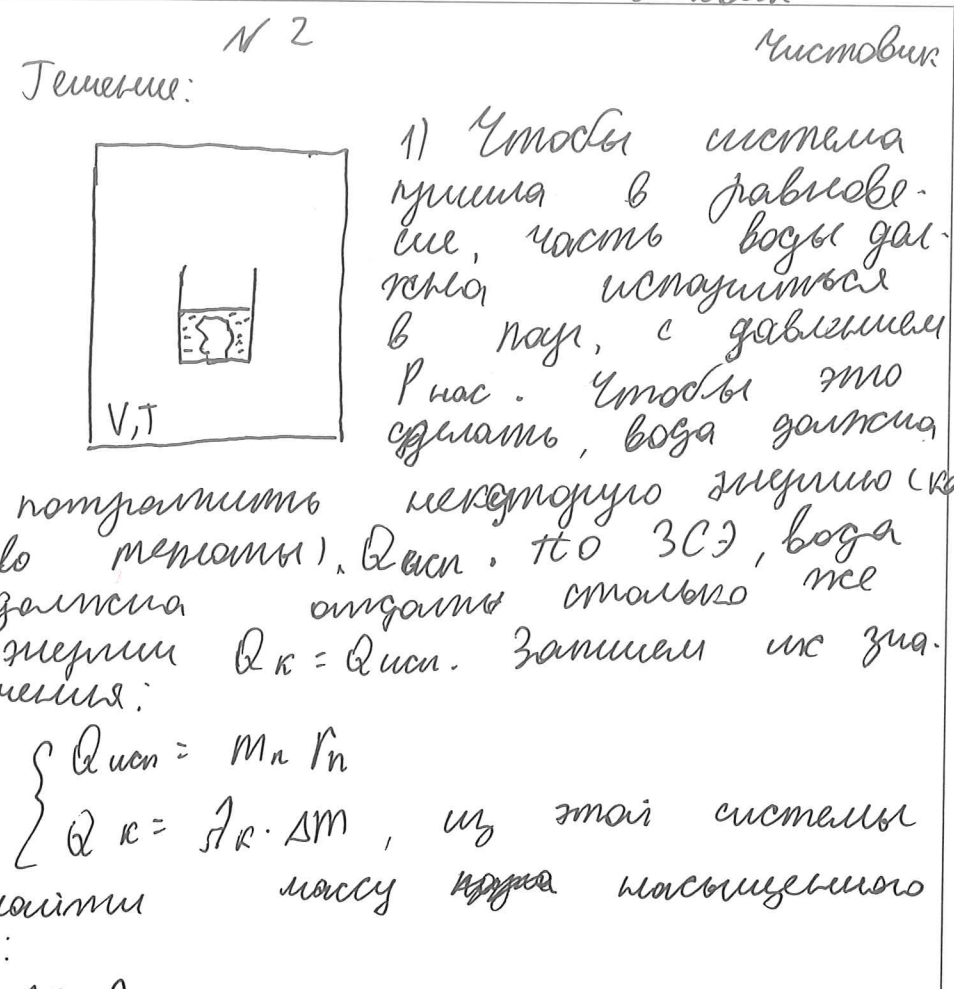 N 2
Чистовик
Решение:
1) Чтобы система
пришла в равнове-
сие, часть воды дол-
жна испариться
в пар, с давлением
Pнас. Чтобы это
сделать, вода должна
V,T
потратить некоторую энергию (ко
во теплоты). Qисп. По ЗСЭ, вода
должна отдать столько же
энергии Qк = Qисп. Запишем их зна-
чения:
{ Qисп = mп rп
{ Qк = λк · Δm, из этой системы
найти массу насыщенного
: